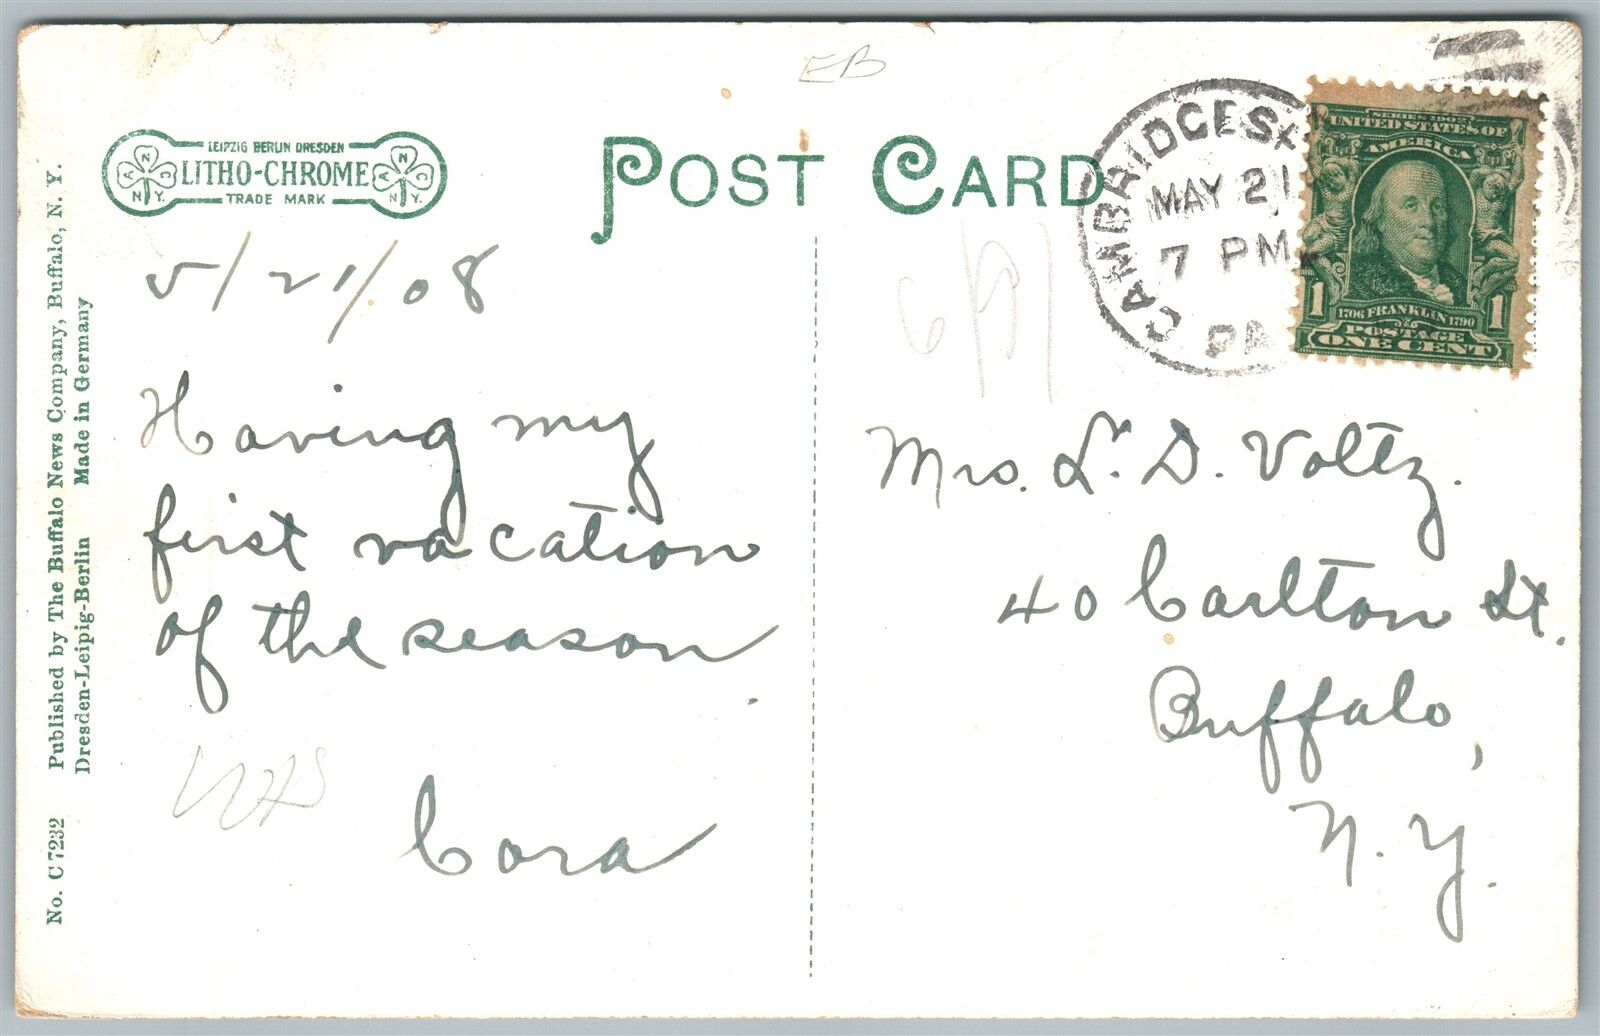 EB
LEIPZIG BERLIN DRESDEN
LITHO-CHROME
TRADE MARK
A N C N.Y.
A N C N.Y.
POST CARD
CAMBRIDGE
MAY 21
7 PM
PA
SERIES 1902
UNITED STATES OF
AMERICA
1 1
1706 FRANKLIN 1790
POSTAGE
ONE CENT
5/21/08
Having my
first vacation
of the season.
Cora
Mrs. L. D. Voltz.
40 Carlton St.
Buffalo,
N. Y.
No. C 7232 Published by The Buffalo News Company, Buffalo, N. Y.
Dresden-Leipig-Berlin Made in Germany